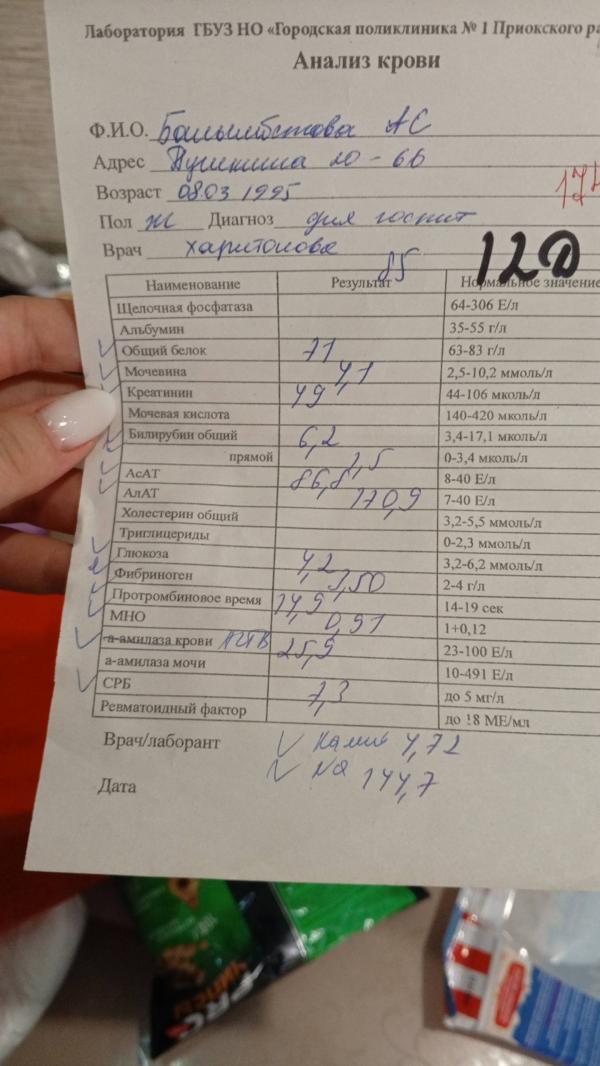 Лаборатория ГБУЗ НО «Городская поликлиника № 1 Приокского ра
Анализ крови
Ф.И.О. АС
Адрес Пушкина 20-66
Возраст 08.03 1995
Пол ж Диагноз для госпит
Врач Харитонова
85
12Д
Наименование Результат Нормальное значение
Щелочная фосфатаза 64-306 Е/л
Альбумин 35-55 г/л
Общий белок 71 63-83 г/л
Мочевина 4,1 2,5-10,2 ммоль/л
Креатинин 49 44-106 мколь/л
Мочевая кислота 140-420 мколь/л
Билирубин общий 6,2 3,4-17,1 мколь/л
прямой 1,5 0-3,4 мколь/л
АсАТ 86,8 8-40 Е/л
АлАТ 170,9 7-40 Е/л
Холестерин общий 3,2-5,5 ммоль/л
Триглицериды 0-2,3 ммоль/л
Глюкоза 4,2 3,2-6,2 ммоль/л
Фибриноген 3,50 2-4 г/л
Протромбиновое время 14,9 14-19 сек
МНО 0,91 1+0,12
а-амилаза крови АЧТВ 25,9 23-100 Е/л
а-амилаза мочи 10-491 Е/л
СРБ 7,3 до 5 мг/л
Ревматоидный фактор до 18 МЕ/мл
Врач/лаборант Калий 4,72
Na 144,7
Дата